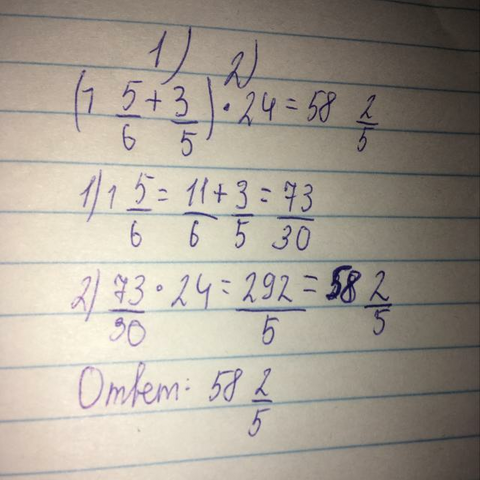 1) 2)
(1 5/6 + 3/5) · 24 = 58 2/5
1) 1 5/6 = 11/6 + 3/5 = 73/30
2) 73/30 · 24 = 292/5 = 58 2/5
Ответ: 58 2/5